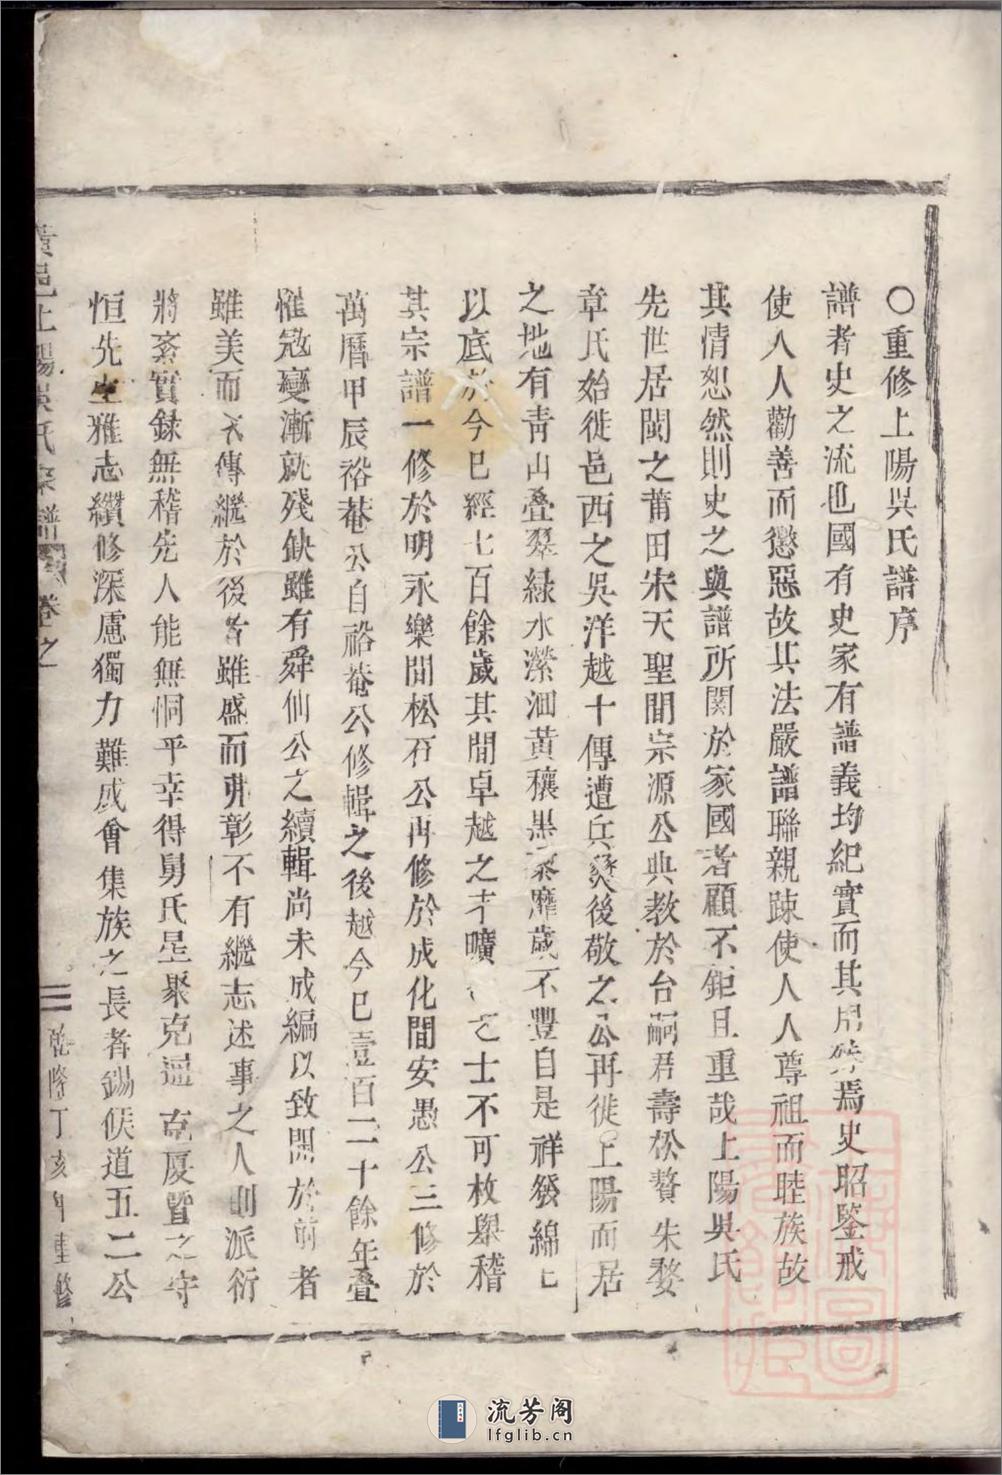 ○重修上陽吳氏譜序
譜者史之流也國有史家有譜義均紀實而其用殊焉史昭鑒戒
使人人勸善而懲惡故其法嚴譜聯親踈使人人尊祖而睦族故
其情恕然則史之與譜所関於家國者顧不鉅且重哉上陽吳氏
先世居閩之莆田宋天聖間宗源公典教於台嗣君壽松贅朱婺
章氏始徙邑西之吳洋越十傳遭兵燹後敬之公再徙上陽而居
之地有青山叠翠緑水瀠洄黃穰黑黍靡歲不豐自是祥發綿
以底於今已經七百餘歲其間卓越之才曠之士不可枚舉稽
其宗譜一修於明永樂間松石公再修於成化間安愚公三修於
萬曆甲辰裕菴公自裕菴公修輯之後越今已壹百二十餘年叠
罹冦變漸就残缺雖有舜仙公之續輯尚未成編以致閲於前者
雖美而不傳繼於後者雖盛而弗彰不有繼志述事之人則派衍
將紊實録無稽先人能無恫乎幸得舅氏星聚克遥克廈暨之守
恒先生雅志纘修深慮獨力難成會集族之長者錫侯道五二公
黃邑上陽吳氏宗譜 卷之
三 乾隆丁亥年重修
流芳阁
lfglib.cn